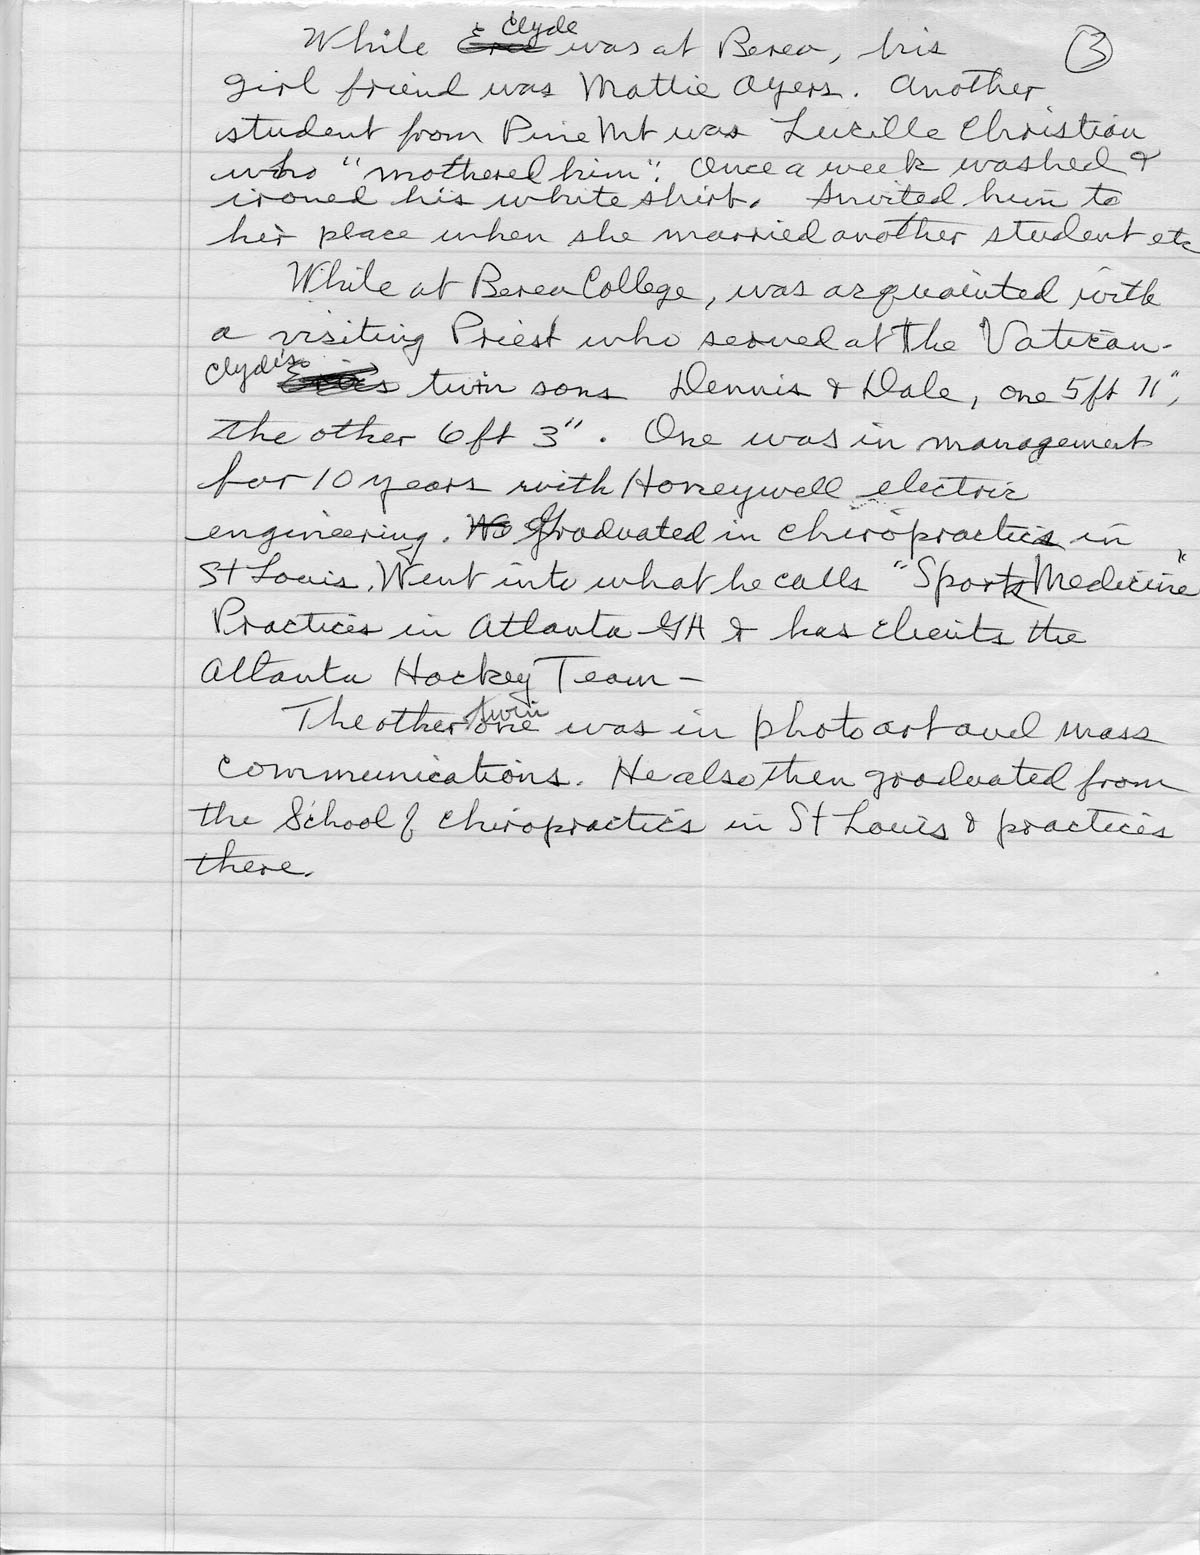 While Clyde was at Berea, his ③
girl friend was Mattie Ayers. Another
student from Pine Mt was Lucille Christian
who "mothered him". Once a week washed &
ironed his white shirt. Invited him to
her place when she married another student etc
While at Berea College, was acquainted with
a visiting Priest who served at the Vatican-
Clyde's twin sons Dennis & Dale, one 5ft 11",
the other 6ft 3". One was in management
for 10 years with Honeywell electric
engineering. Graduated in chiropractics in
St Louis. Went into what he calls "Sports Medicine"
Practices in Atlanta GA & has clients the
Atlanta Hockey Team-
The other twin one was in photo art and mass
communications. He also then graduated from
the School of chiropractics in St Louis & practices
there.